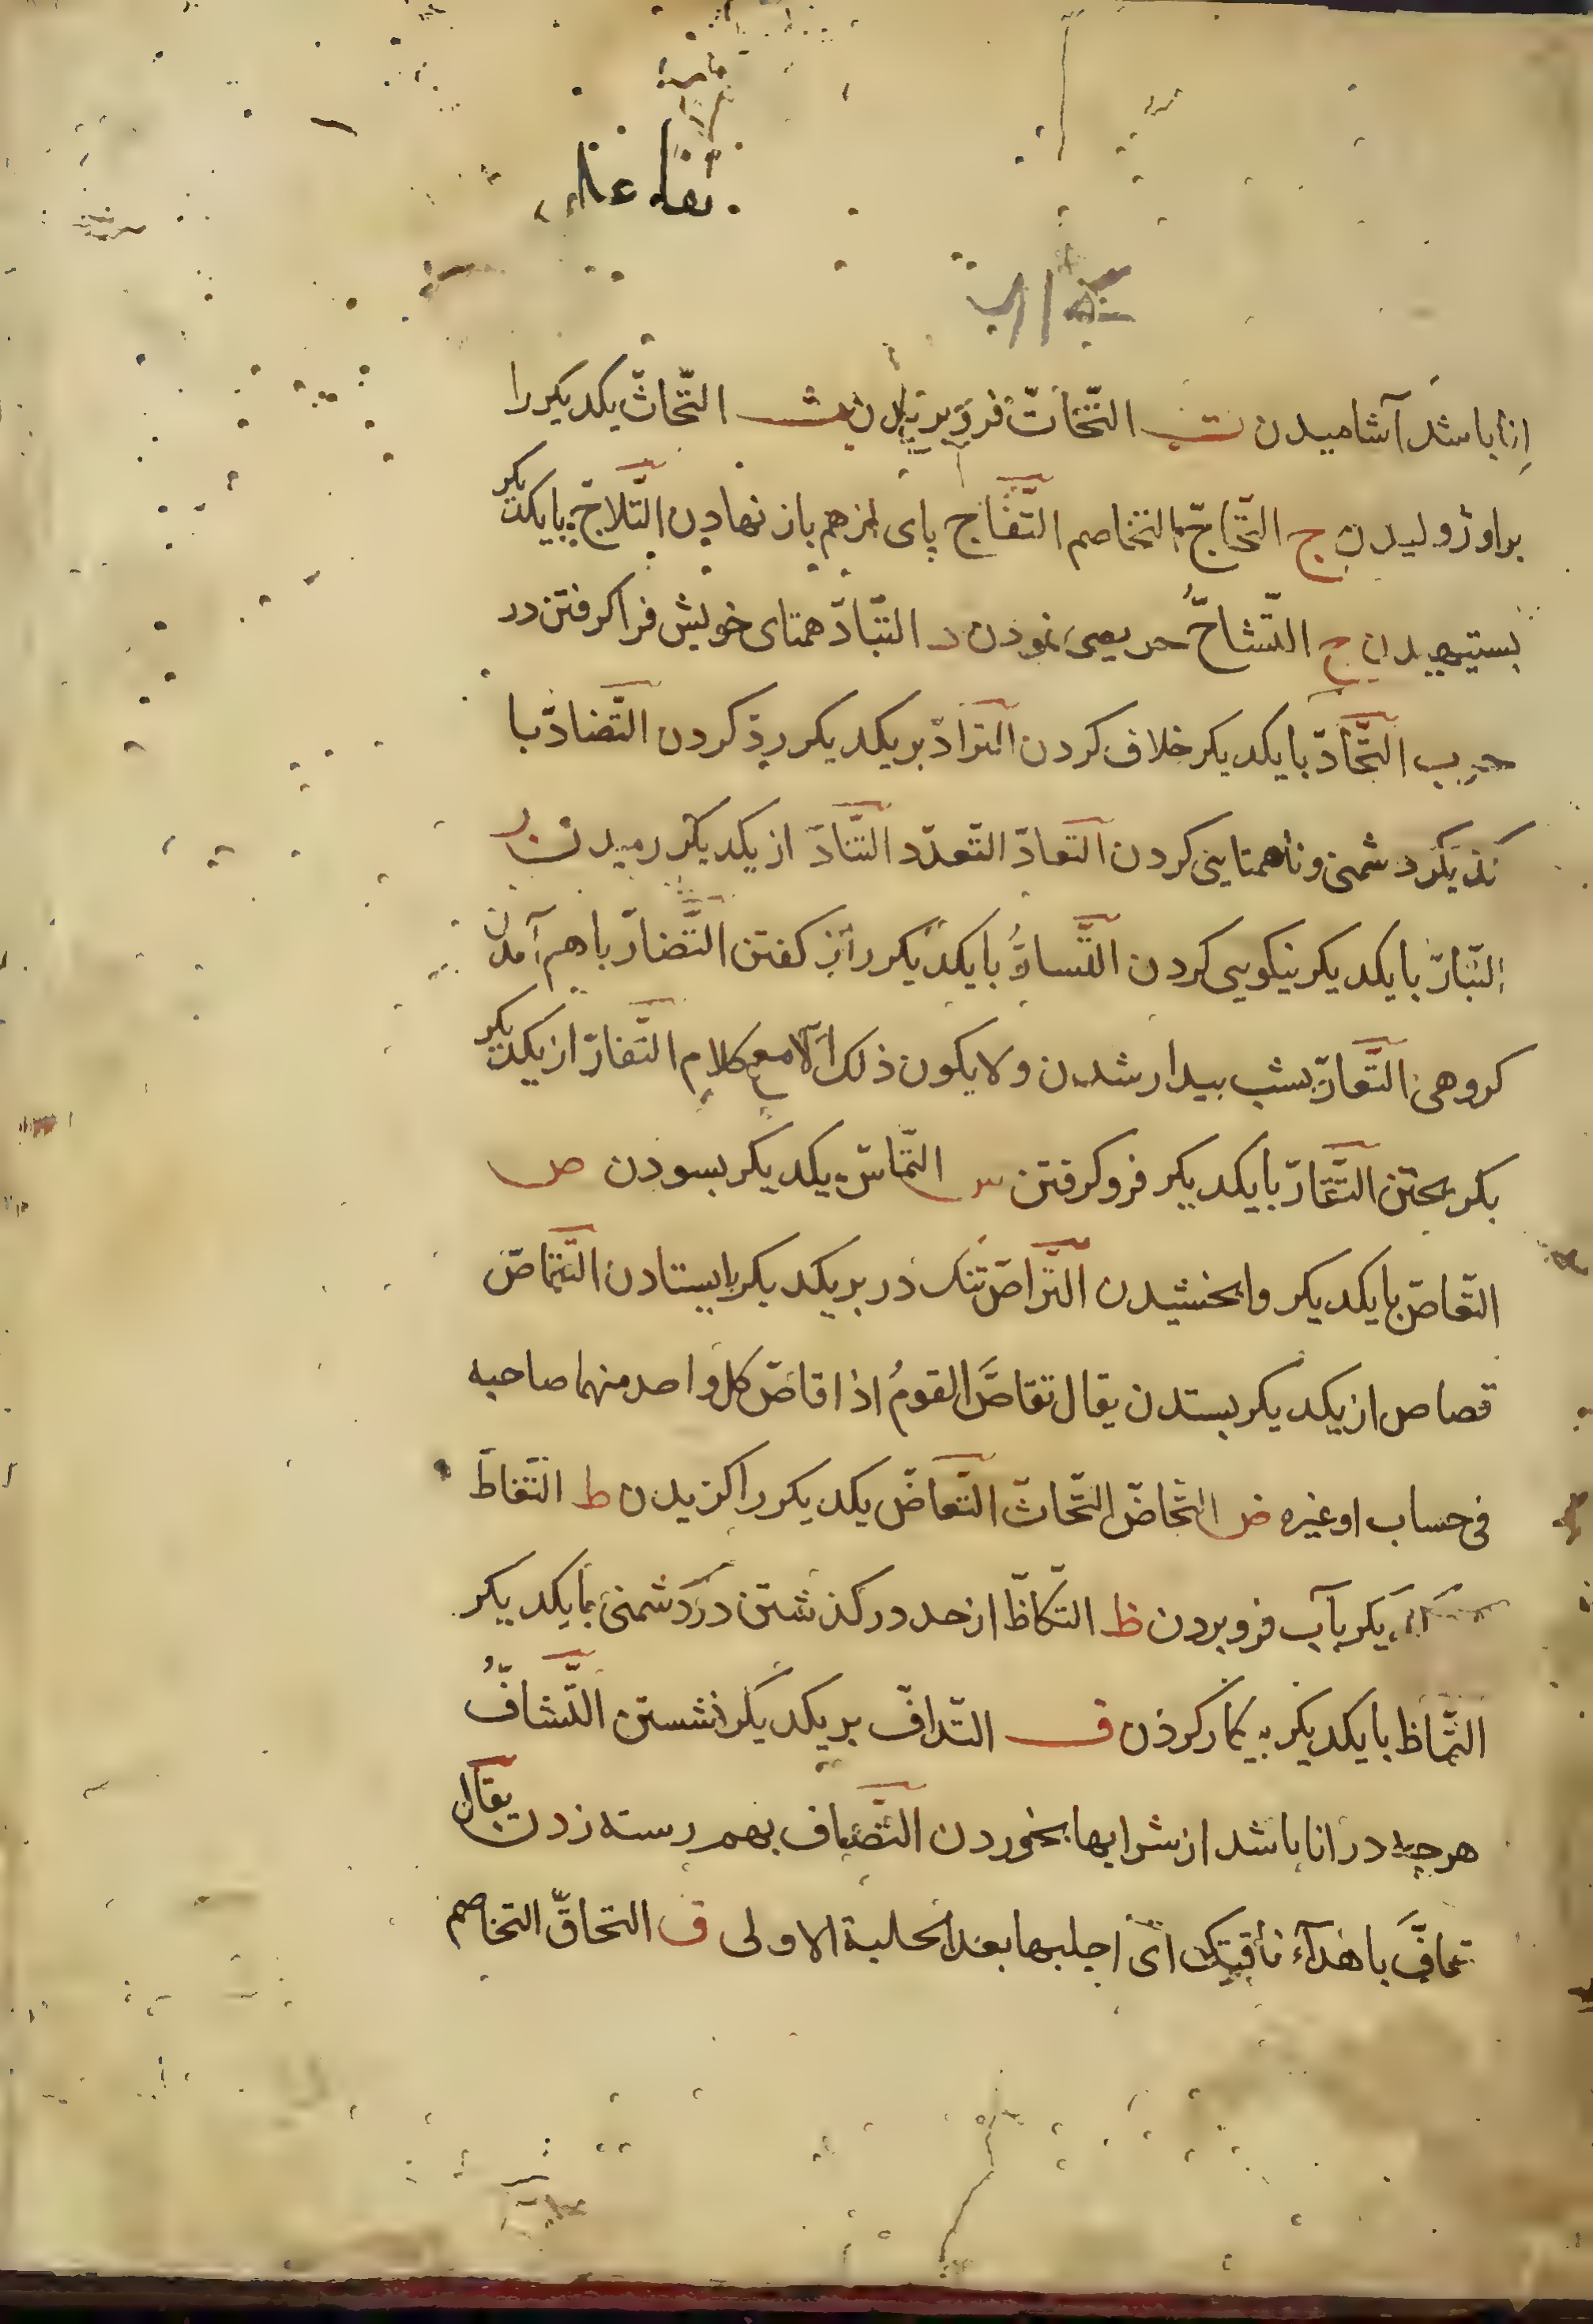 تفاعل
انا باشد آشامیدن ت التَّحَاتّ فرو ریزیدن ث التَّحاثّ یکدیکر را
براوژولیدن ج التَّحَاجّ التخاصم التَّفَاج پای از هم باز نهادن التَّلاجّ بایکدیکر
بستیهیدن ح التَّشَاحُّ حریصی نمودن د التبَّادّ همتای خویش فرا کرفتن در
حرب التَّحَادّ بایکدیکر خلاف کردن الترادّ بر یکدیکر ردّ کردن التَّضادّ با
یکدیکر دشمنی و ناهمتایی کردن التعادّ التّعدّد التَّنَادّ از یکدیکر رمیدن ر
التبَّارّ با یکدیکر نیکویی کردن التَّسارُّ بایکدیکر راز کفتن التَّضارّ باهم آمدن
کروهی التَّعَارّ بشب بیدار شدن ولا یکون ذلک الّا مع کلام التَّفارّ از یکدیکر
بکریختن التَّقَارّ بایکدیکر فرو کرفتن س التَّماسّ یکدیکر بسودن ص
التَّحَاصّ بایکدیکر وابخشیدن التَّراصّ تنک در بر یکدیکر بایستادن التَّقاصّ
قصاص از یکدیکر بستدن یقال تقاصَّ القومُ اذا قاصّ کل واحد منهما صاحبه
فی حساب او غیره ض التَّحَاضّ التَّحاثّ التَّعاضّ یکدیکر را کزیدن ط التَّغاطّ
یکر بآب فرو بردن ظ التَّکاظّ از حد در کذشتن در دشمنی بایکدیکر
التَّمَاظّ بایکدیکر پیکار کردن ف التّدافّ بر یکدیکر نشستن التَّشافُّ
هرچه در انا باشد از شرابها بخوردن التَّصَاف بهم رسته زدن یقال
تعافَّ یا هذا ناقتک ای احلبها بعد الحلبة الاولی ق التحاقّ التخاصم